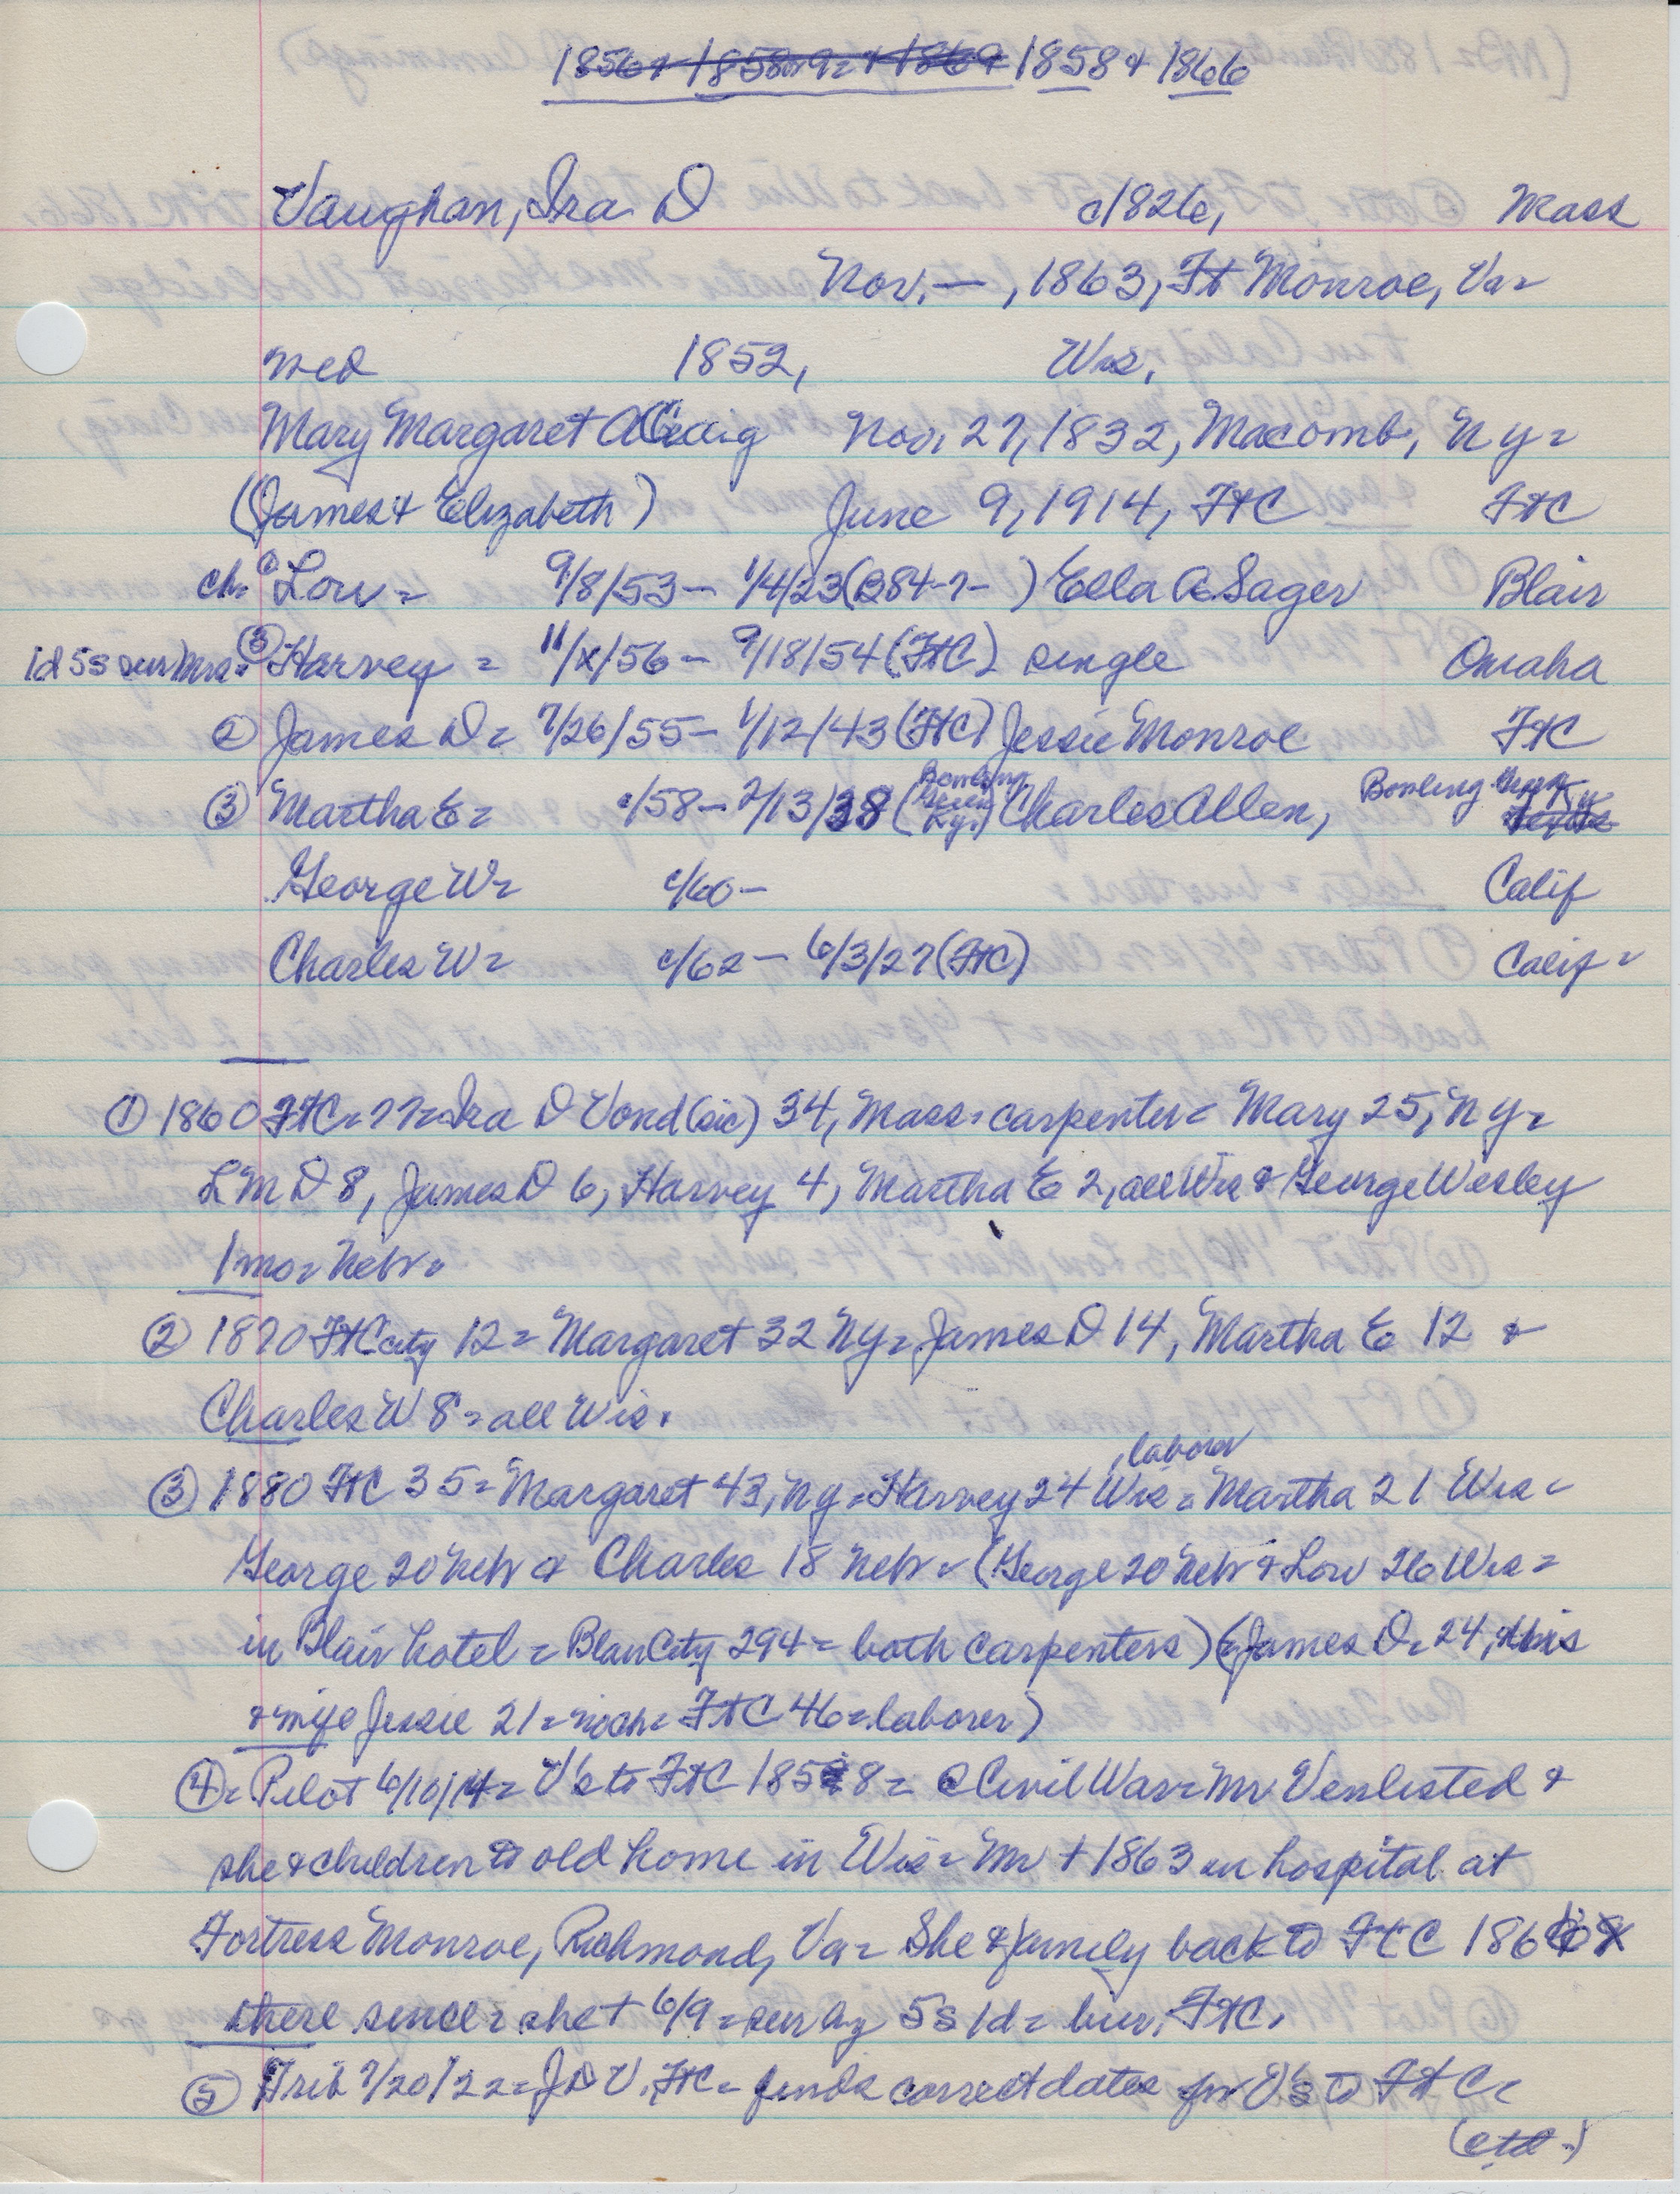 1856 & 1858 or 9 = + 1869 1858 & 1866
Vaughan, Ira D c/1826, Mass
Nov. — , 1863, Ft Monroe, Va =
med 1852, Wis.
Mary Margaret Nov. 27, 1832, Macomb, Ny =
(James & Elizabeth) June 9, 1914, FtC FtC
ch. ① Low = 9/8/53 — 1/4/23 (B84-7- ) Ella A. Sager Blair
1d 5s sur Mrs. ③ Harvey = 11/x/56 — 9/18/54 (FtC) single Omaha
② James D = 7/26/55 — 1/12/43 (FtC) Jessie Monroe FtC
③ Martha E = c/58 — 2/13/38 (Bowling Green Ky.) Charles Allen, Bowling Green Ky
George W = c/60 — Calif
Charles W = c/62 — 6/3/27 (FtC) Calif =
① 1860 FtC = 77 = Ira D Vond (sic) 34, Mass. carpenter = Mary 25, Ny =
L M D 8, James D 6, Harvey 4, Martha E 2, all Wis & George Wesley
1 mo = Nebr =
② 1870 FtC city 12 = Margaret 32 Ny = James D 14, Martha E 12 &
Charles W 8 = all Wis.
③ 1880 FtC 35 = Margaret 43, Ny = Harvey 24 Wis , laborer = Martha 21 Wis =
George 20 Nebr & Charles 18 Nebr = (George 20 Nebr & Low 26 Wis =
in Blair hotel = Blair City 294 = both carpenters) (= James D = 24, Wis
& wife Jessie 21 = FtC 46 = laborer)
④ = Pilot 6/10/14 = V's to FtC 1858 = @ Civil War = Mr V enlisted &
she & children to old home in Wis = Mr + 1863 in hospital at
Fortress Monroe, Richmond, Va = She & family back to FtC 1866
there since = she + 6/9 = sur by 5s 1d = bur. FtC.
⑤ Trib 7/20/22 = J D V. FtC = finds correct dates for V's to FtC =
(ctd.)